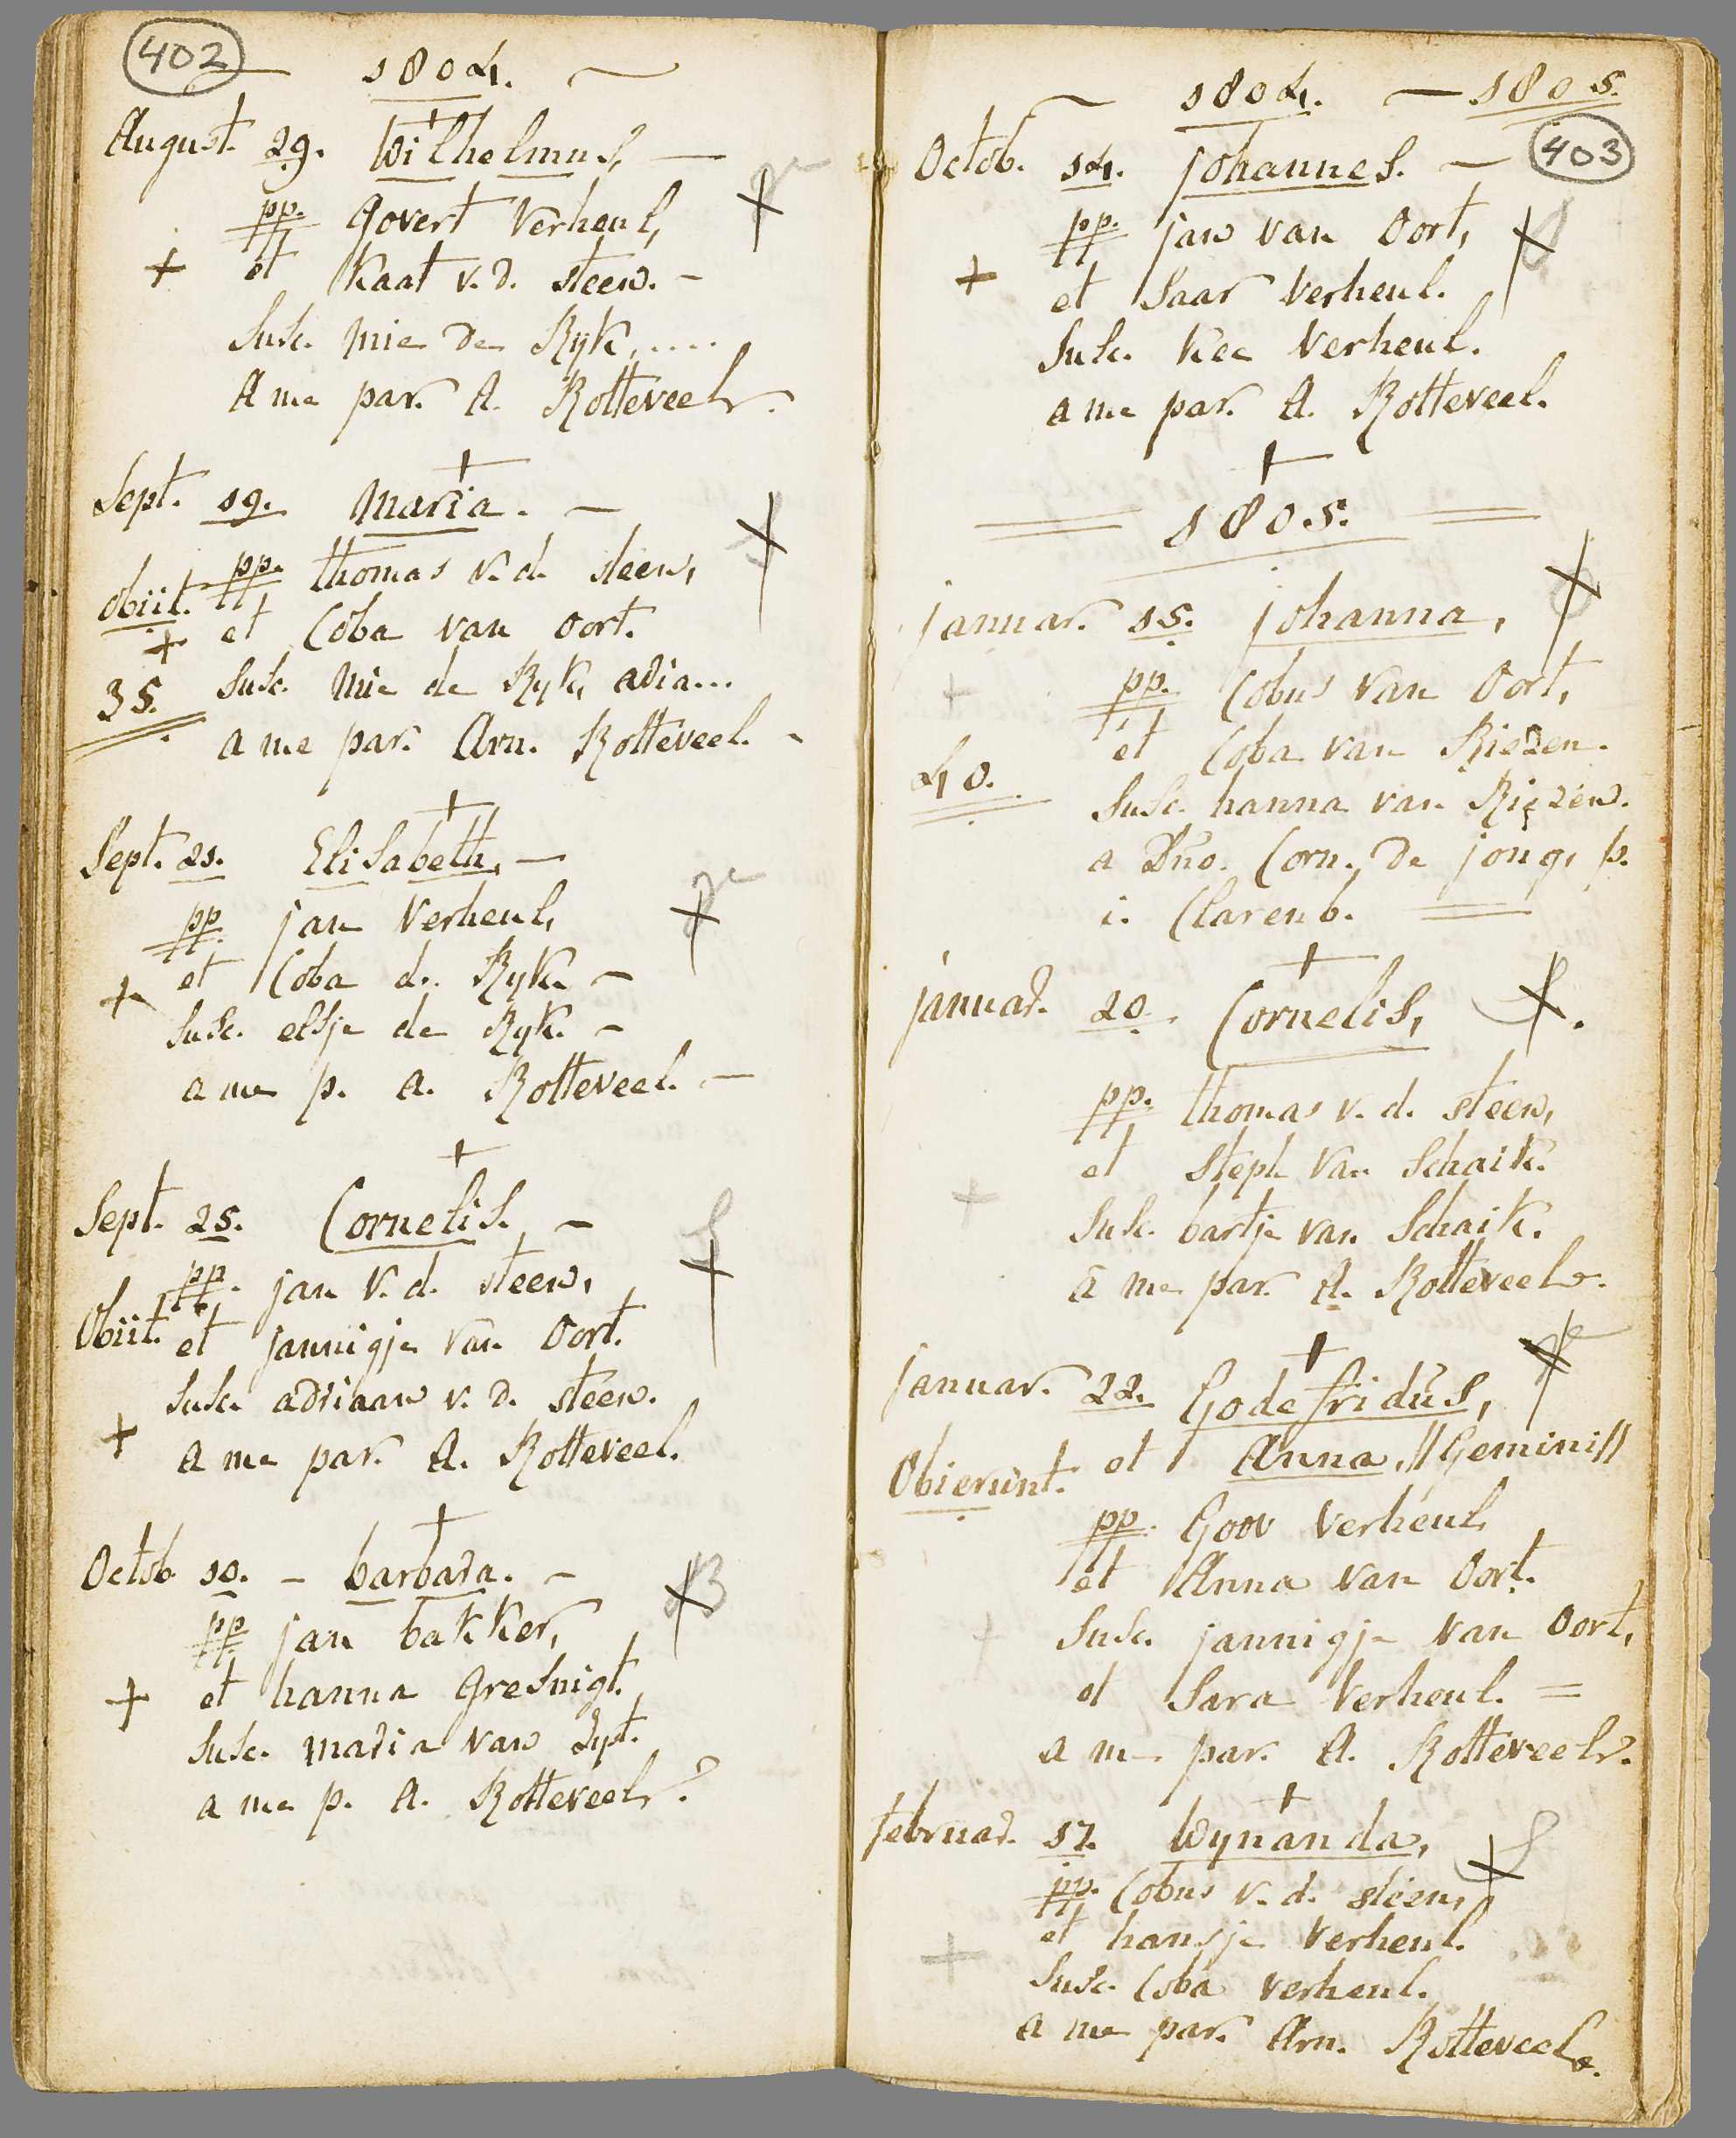 402
1804.
August. 29. Wilhelmus,
pp. Govert Verheul,
et Kaat v. d. steen.
Susc. mie de Ryk.....
a me par. A. Rotteveel.
Sept. 19. Maria.
pp. thomas v. d. steen,
obiit.
et Coba van oort.
35. Susc. Mie de Ryk, adia...
a me par. Arn. Rotteveel.
Sept. 21. Elisabeth,
pp. jan Verheul,
et Coba d. Ryk.
Susc. elsje de Ryk.
a me p. a. Rotteveel.
Sept. 25. Cornelis.
pp. jan v. d. steen,
Obiit. et jannigje van Oort.
Susc. adriaan v. d. steen.
a me par. A. Rotteveel.
Octob. 10. barbara.
pp jan bakker,
et hanna Gresnigt.
Susc. maria van Zyt.
a me p. A. Rotteveel.
1804. 1805.
403
Octob. 14. johannes.
pp. jan van Oort,
et Saar Verheul.
Susc. Kee Verheul.
a me par. A. Rotteveel.
1805.
januar. 15. johanna,
pp. Cobus van Oort,
et Coba van Riezen.
40.
Susc. hanna van Riezen.
a Dno. Corn. de jong, p.
i. Clarenb.
januar. 20. Cornelis,
pp. thomas v. d. steen,
et Steph van Schaik.
Susc. bartje van Schaik.
a me par. A. Rotteveel.
januar. 22. Godefridus,
et Anna, // Gemini //
Obierunt.
pp. Goov Verheul,
et Anna van Oort.
Susc. jannigje van Oort,
et Sara Verheul.
a me par. A. Rotteveel.
februar. 17. Wynanda,
pp. Cobus v. d. steen,
et hansje Verheul.
Susc. Coba verheul.
a me par. Arn. Rotteveel.